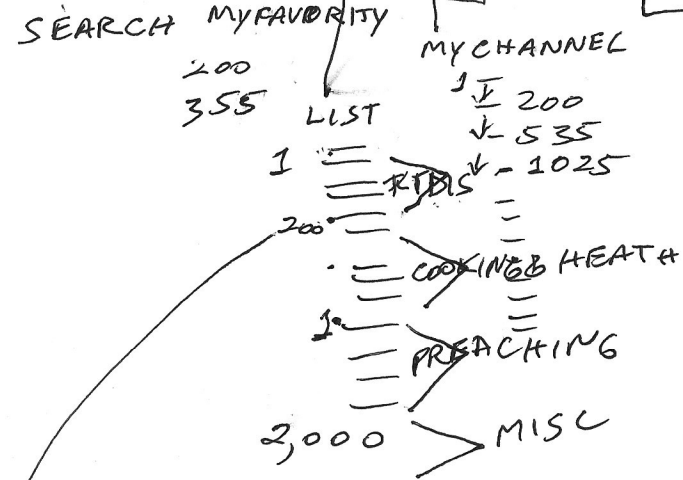 SEARCH MYFAVORITY
MYCHANNEL
200
355
LIST
1 - 200
- 535
- 1025
1
KIDS
200
COOKING& HEATH
1
PREACHING
2,000
MISC